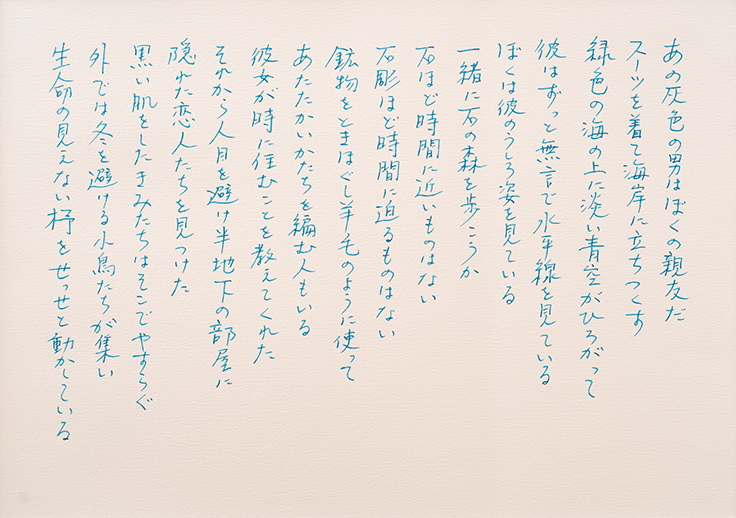 あの灰色の男はぼくの親友だ
スーツを着て海岸に立ちつくす
緑色の海の上に淡い青空がひろがって
彼はずっと無言で水平線を見ている
ぼくは彼のうしろ姿を見ている
一緒に石の森を歩こうか
石ほど時間に近いものはない
石彫ほど時間に迫るものはない
鉱物をときほぐし羊毛のように使って
あたたかいかたちを編む人もいる
彼女が時に住むことを教えてくれた
それから人目を避け半地下の部屋に
隠れた恋人たちを見つけた
黒い肌をしたきみたちはそこでやすらぐ
外では冬を避ける水鳥たちが集い
生命の見えない杼をせっせと動かしている